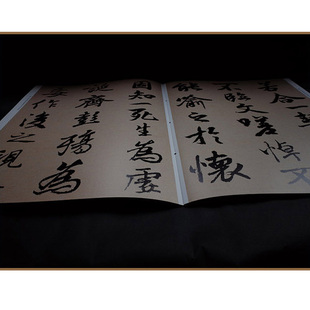 若合一
不臨文嗟悼不
能喻之於懷
固知一死生為虛
誕齊彭殤為
妄作後之視